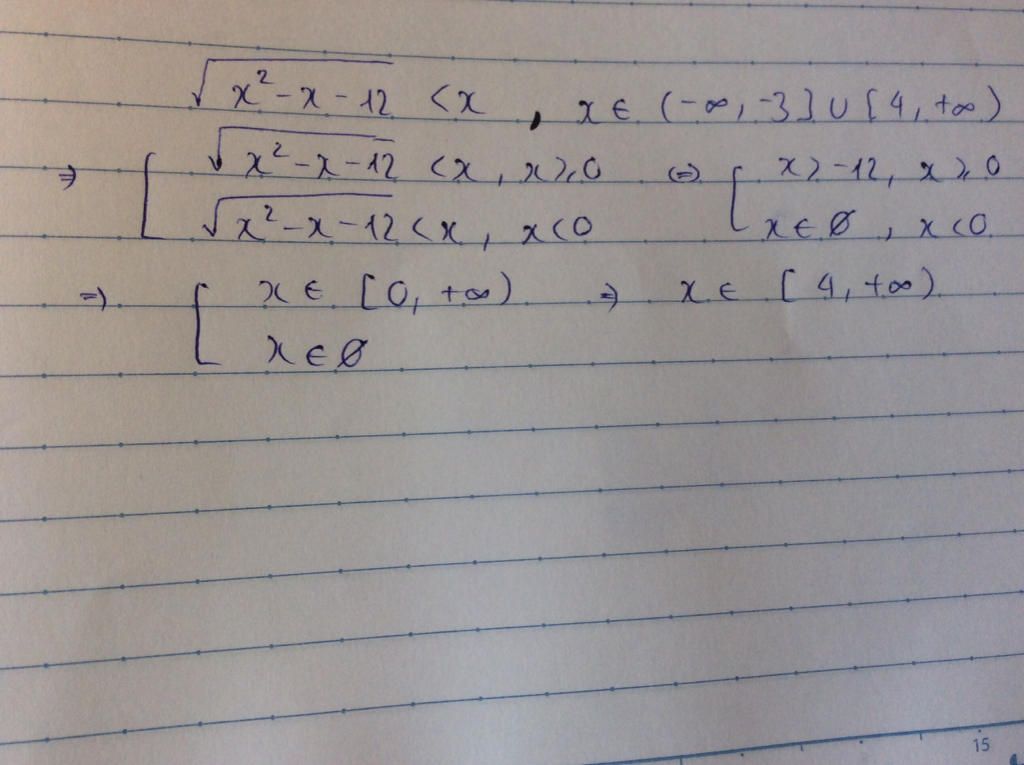 √(x²-x-12) <x , x ∈ (-∞, -3] ∪ [4, +∞)
⇒ [ √(x²-x-12) <x , x⩾0 ⇔ [ x>-12, x⩾0
√(x²-x-12) <x, x<0 x∈∅ , x<0
⇒ [ x ∈ [0, +∞) ⇒ x ∈ [4, +∞)
x∈∅
15